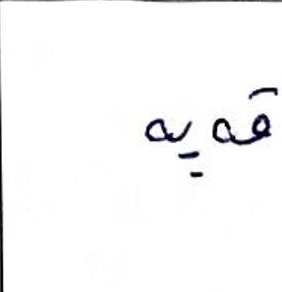 قه يه